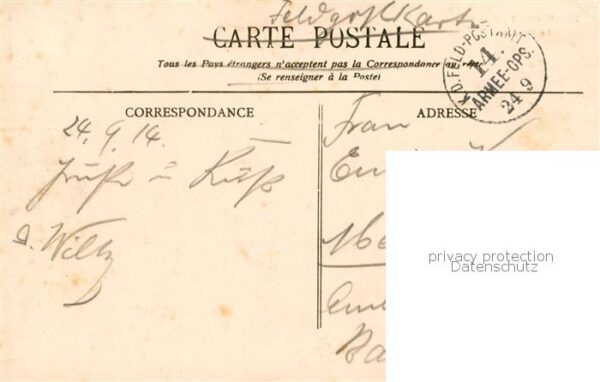 Feldpostkarte
CARTE POSTALE
Tous les Pays étrangers n'acceptent pas la Correspondance au recto
(Se renseigner à la Poste)
K.D. FELD-POSTAMT
14.
ARMEE-OPS.
24 9
CORRESPONDANCE
ADRESSE
24.9.14.
Gruß u Kuß
d. Willy
Frau
privacy protection
Datenschutz